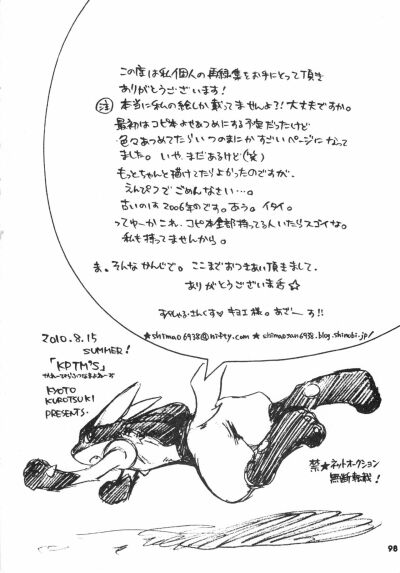 この度は私個人の再録集をお手にとって頂き
ありがとうございます!
注 本当に私の絵しか載ってませんよ?!大丈夫ですか。
最初はコピ本よせあつめにする予定だったけど
色々あつめてたらいつのまにかすごいページになって
ました。いや、まだあるけど
もっとちゃんと描けてたらよかったのですが、
えんぴつでごめんなさい…。
古いのは2006年のです。あう。イタイ。
ってゆーかこれ、コピ本全部持ってる人いたらスゴイな。
私も持ってませんから。
ま。そんなかんじで。ここまでおつきあい頂きまして。
ありがとうございま舌☆
すぺしゃるさんくす♥ キョエ様。あざーす!!
★shimao6938@nifty.com ★shimaosan6938.blog.shinobi.jp/
2010.8.15
SUMMER!
「KPTM'S」
KYOTO
KUROTSUKI
PRESENTS.
禁★ネットオークション
無断転載!
98